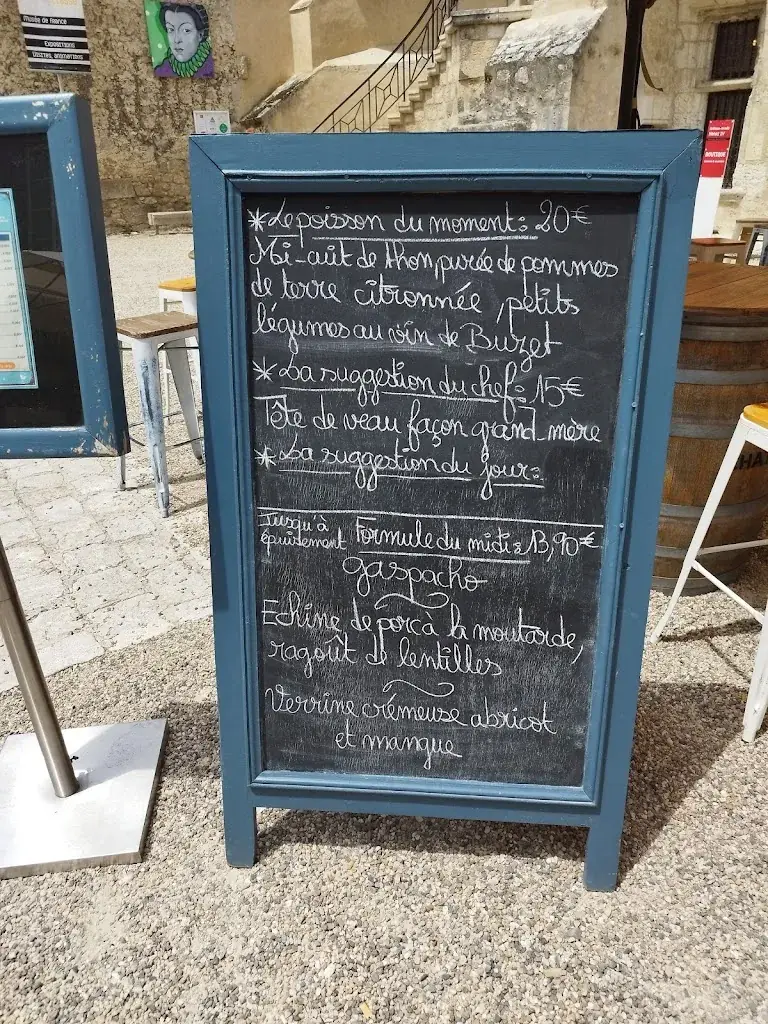 Musée de France
Expositions
Visites, animations
BOUTIQUE
*Le poisson du moment : 20€
Mi-cuit de thon, purée de pommes
de terre citronnée, petits
légumes au vin de Buzet
*La suggestion du chef : 15€
Tête de veau façon grand-mère
*La suggestion du jour :
Jusqu'à
épuisement Formule du midi : 13,90€
gaspacho
Echine de porc a la moutarde,
ragoût de lentilles
Verrine crémeuse abricot
et mangue